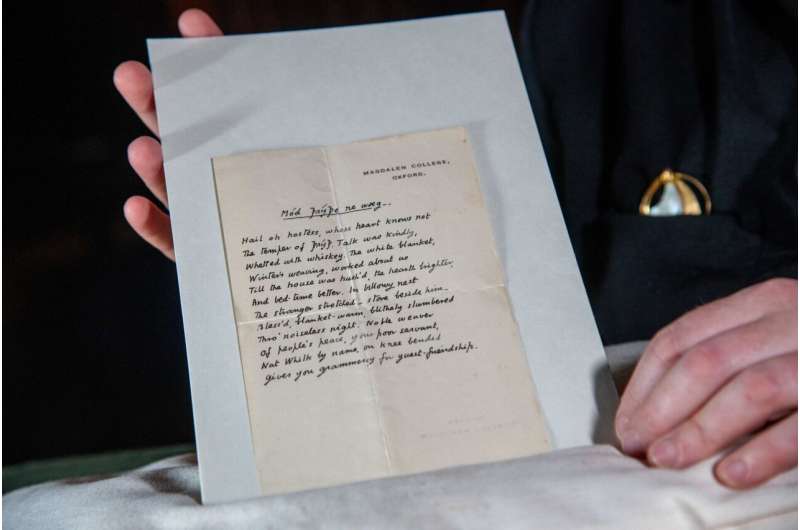 MAGDALEN COLLEGE,
OXFORD.
Mód Þrýþe ne wæg._
Hail oh hostess, whose heart knows not
The temper of Þrýþ. Talk was kindly,
Whetted with whiskey. The white blanket,
Winter's weaving, worked about us
Till the house was hush'd, the hearth brighter,
And bed-time better. In billowy nest
The stranger stretched – stove beside him –
Bless'd, blanket-warm, blithely slumbered
Thro' noiseless night. Noble weaver
Of people's peace, your poor servant,
Nat Whilk by name, on knee bended
gives you grammercy for guest-friendship.